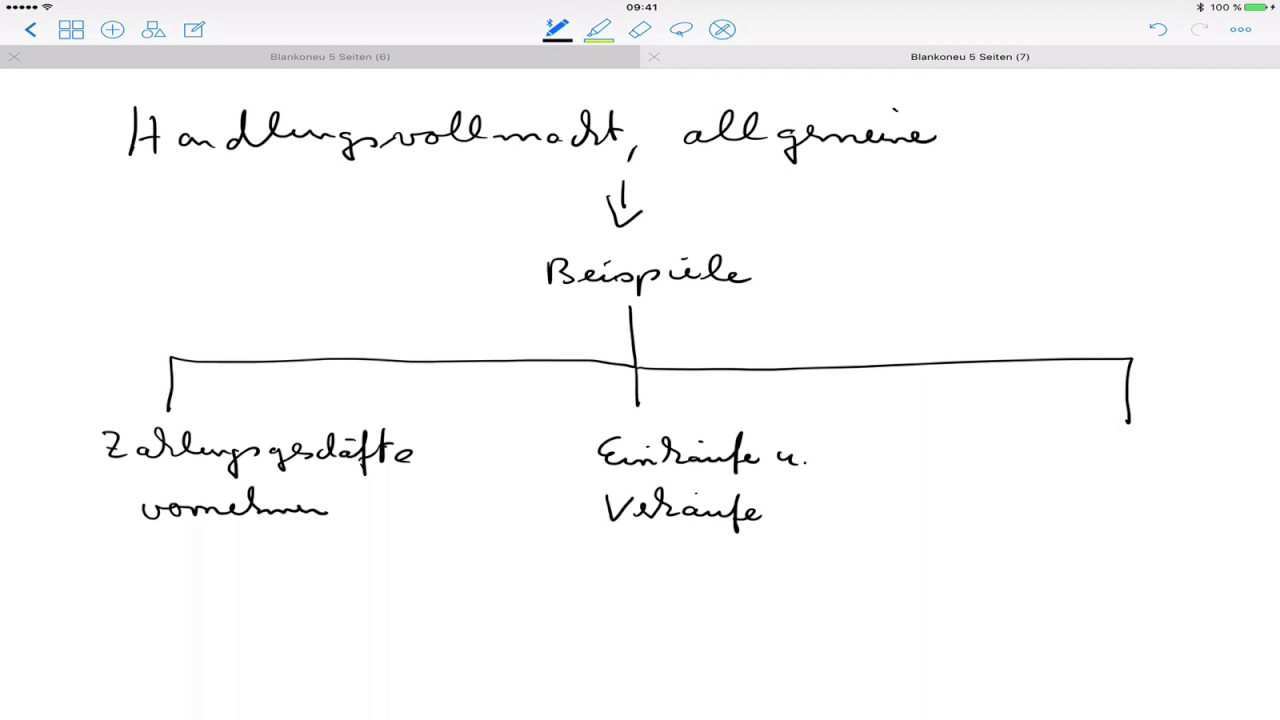 09:41
100 %
Blankoneu 5 Seiten (6)
Blankoneu 5 Seiten (7)
Handlungsvollmacht, allgemeine
Beispiele
Zahlungsgeschäfte
vornehmen
Einkäufe u.
Verkäufe